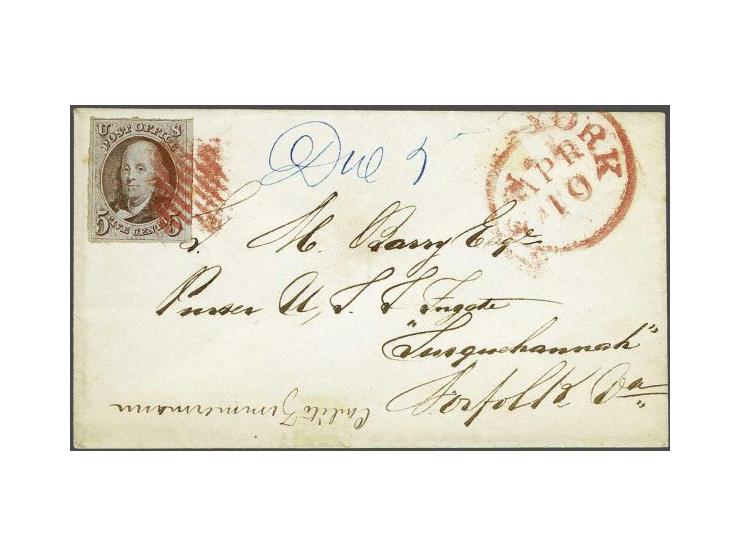 U S
POST OFFICE
5 FIVE CENTS 5
Due 5
YORK
APR
10
S. M. Barry Esqr
Purser U, S. S Frgate
"Susquehannah"
Norfolk Va
Calito Zimmermann